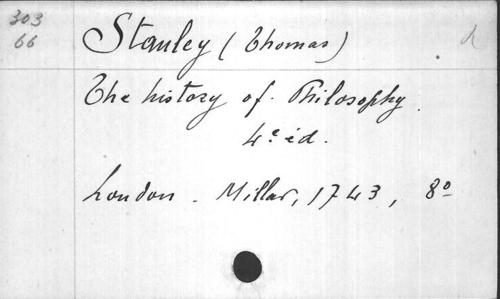 303
66
Stanley (Thomas)
The history of Philosophy.
4e éd.
London. Millar, 1743, 8o